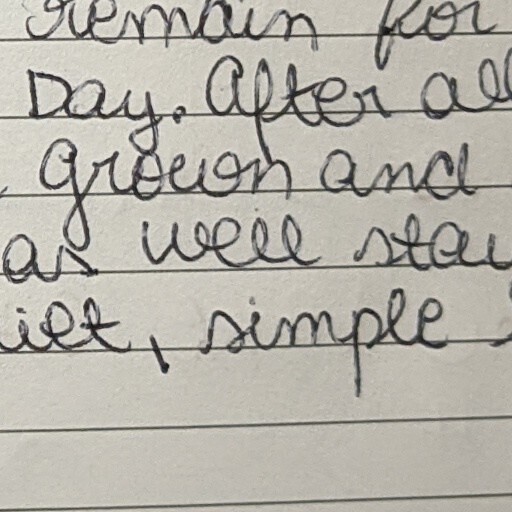 remain for
Day. After all
grown and
as well stay
iet, simple